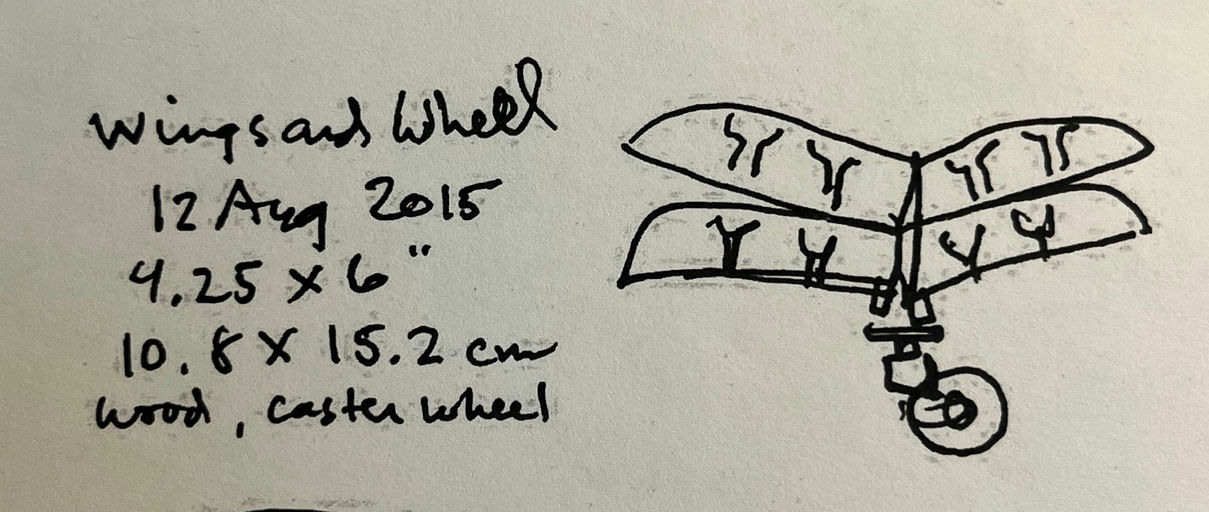 Wings and Wheel
12 Aug 2015
4.25 x 6"
10.8 x 15.2 cm
wood, caster wheel